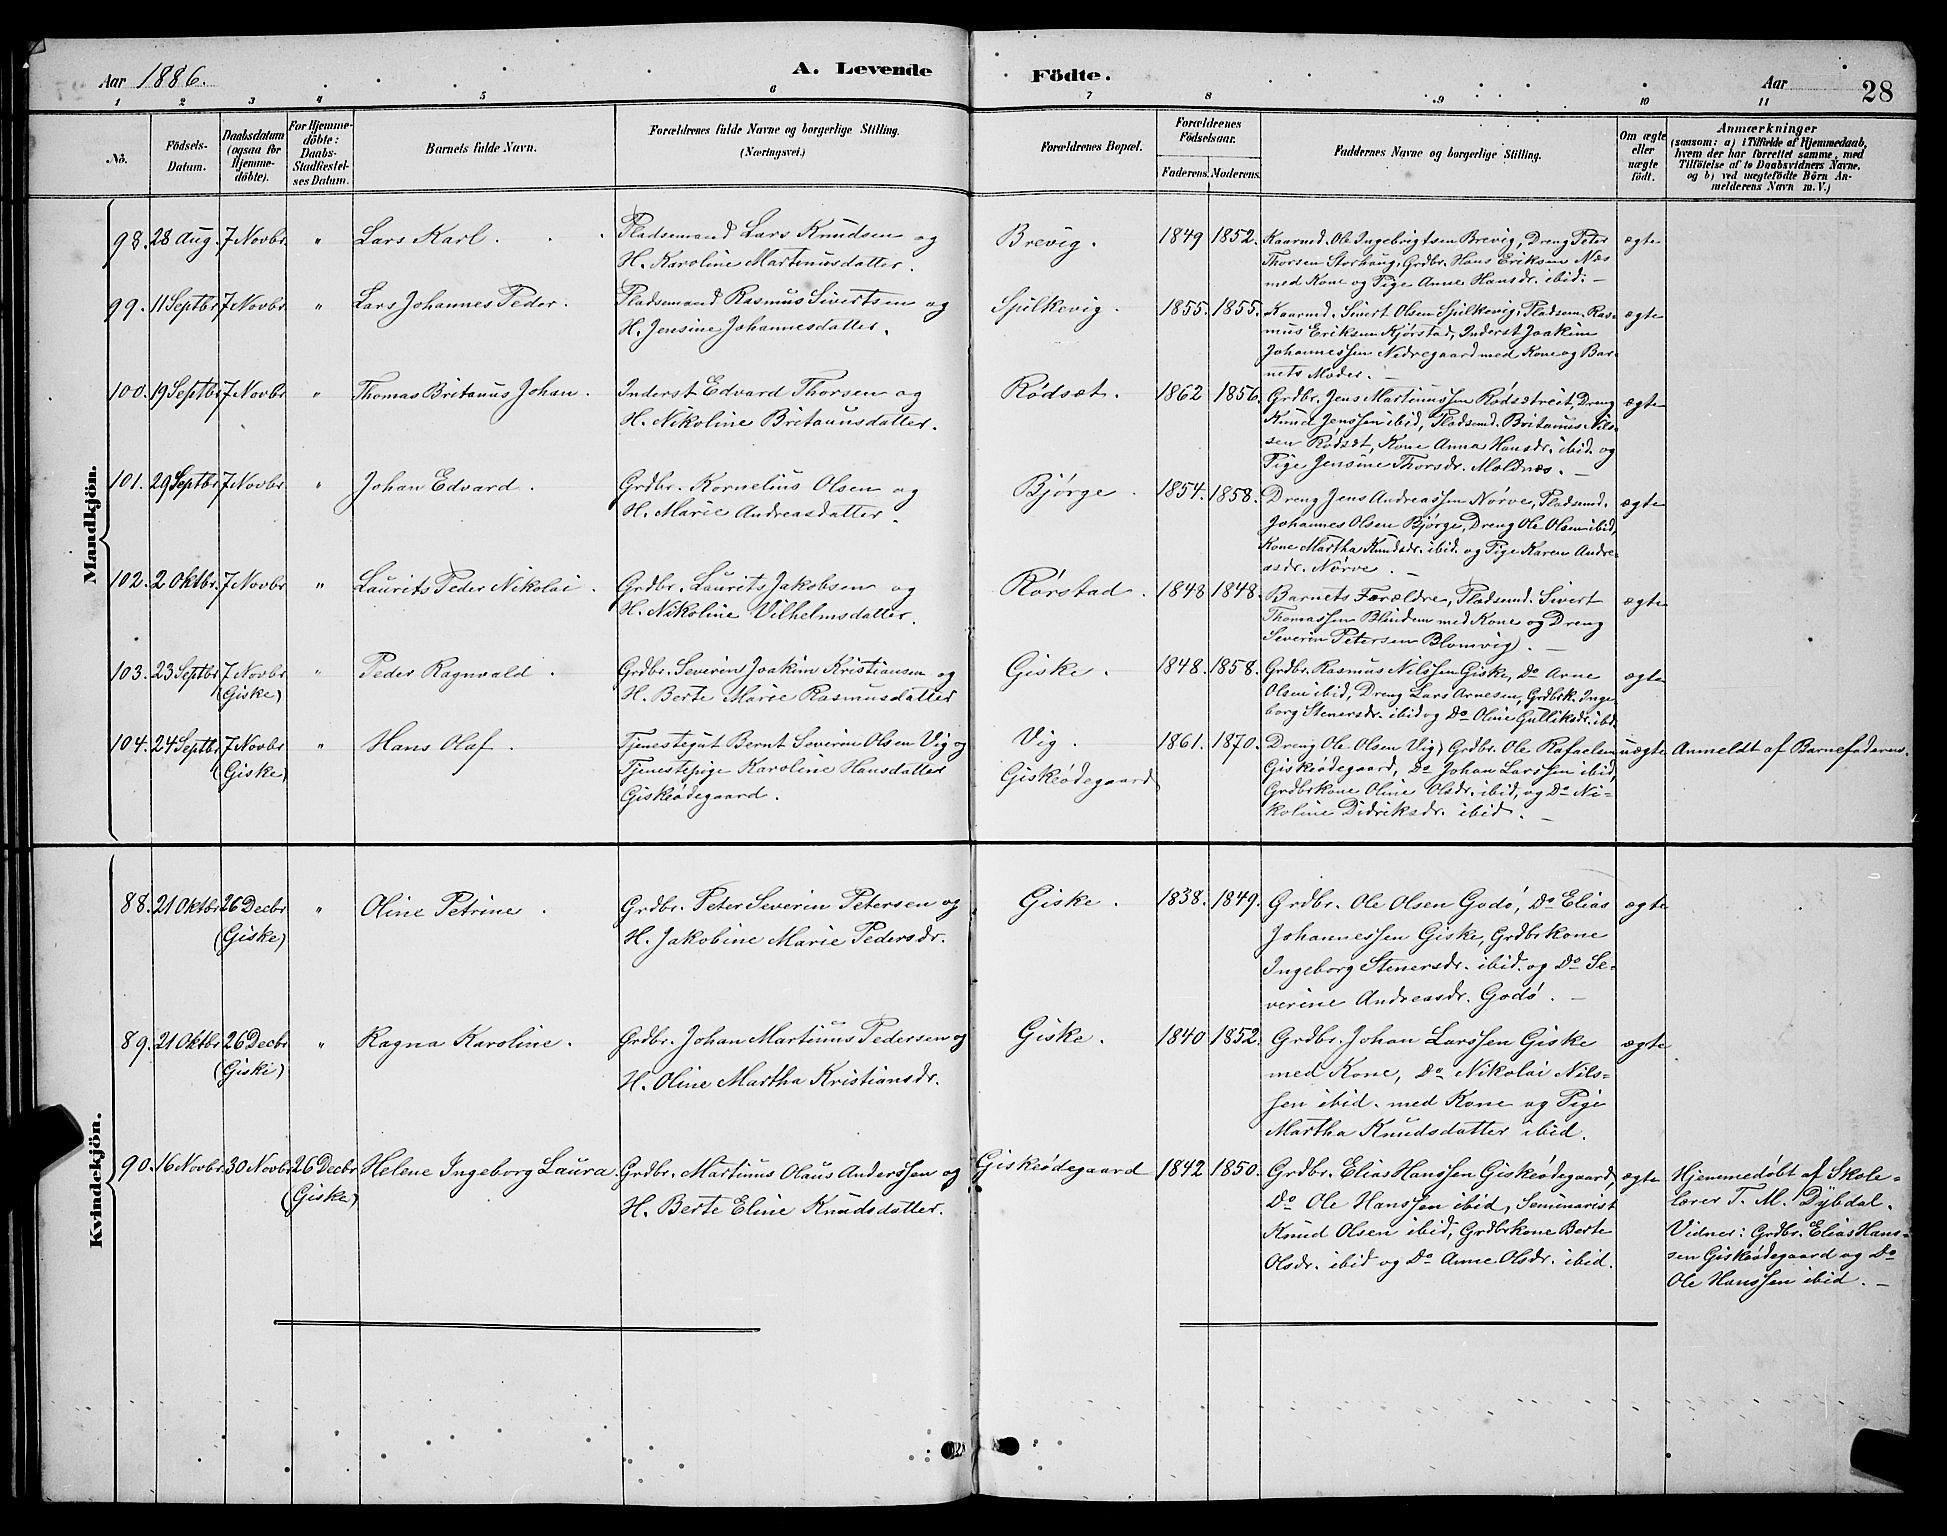 Aar 1886. A. Levende Födte. Aar 28
1 2 3 4 5 6 7 8 9 10 11
No.
Födsels-Datum.
Daabsdatum (ogsaa for Hjemme-döbte).
For Hjemme-döbte: Daabs-Stadfæstel-ses Datum.
Barnets fulde Navn.
Forældrenes fulde Navne og borgerlige Stilling.
(Næringsvei.)
Forældrenes Bopæl.
Forældrenes Födselsaar.
Faderens. Moderens.
Faddernes Navne og borgerlige Stilling.
Om ægte eller uægte födt.
Anmærkninger
(saasom: a) i Tilfælde af Hjemmedaab,
hvem der har forrettet samme, med
Tilföielse af to Daabsvidners Navne.
og b) ved uægtefödte Börn An-
melderens Navn m. V.)
Mandkjön.
98. 28 Aug. 7 Novbr. " Lars Karl. Pladsemand Lars Knudsen og
H. Karoline Martinusdatter.
Brevig. 1849 1852.
Kaarmd. Ole Ingebrigtsen Brevig, Dreng Peter
Thorsen Storhaug, Grdbr. Hans Eriksen Næs
med Kone og Pige Anne Hansdr. ibid. —
ægte
99. 11 Septbr 7 Novbr " Lars Johannes Peder. Pladsemand Rasmus Sivertsen og
H. Jensine Johannesdatter.
Spilkevig. 1855. 1855.
Kaarmd. Sivert Olsen Spilkevig, Pladsem. Ras-
mus Eriksen Kjørstad, Inderst Joakim
Johannessen Nedregaard med Kone og Bar-
nets Moder. —
ægte
100. 19 Septbr 7 Novbr " Thomas Britanus Johan. Inderst Edvard Thorsen og
H. Nikoline Britanusdatter.
Rødsæt. 1862 1856.
Grdbr. Jens Martinussen Rødsætreit, Dreng
Knud Jenssen ibid, Pladsemd. Britanus Nils-
sen Rødsæt, Kone Anna Hansdr. ibid. og
Pige Jensine Thorsdr. Moldnæs. —
ægte
101. 29 Septbr 7 Novbr " Johan Edvard. Grdbr. Kornelius Olsen og
H. Marie Andreasdatter.
Bjørge. 1854. 1858.
Dreng Jens Andreassen Nørve, Pladsemd.
Johannes Olsen Bjørge, Dreng Ole Olsen ibid,
Kone Martha Knudsdr. ibid. og Pige Karen Andre-
asdr. Nørve. —
ægte
102. 2 Oktbr. 7 Novbr " Laurits Peder Nikolai. Grdbr. Laurits Jakobsen og
H. Nikoline Vilhelmsdatter.
Rørstad. 1848 1848.
Barnets Forældre, Pladsemd. Sivert
Thomassen Blindem med Kone og Dreng
Severin Petersen Blomvig. —
ægte
103. 23 Septbr 7 Novbr (Giske) " Peder Ragnvald. Grdbr. Severin Joakim Kristiansen og
H. Berte Marie Rasmusdatter
Giske. 1848. 1858.
Grdbr. Rasmus Nilssen Giske, Do Arne
Olsen ibid, Dreng Lars Arnesen, Grdbrk. Inge-
borg Stenersdr. ibid og Do Oline Gulliksdr. ibid.
ægte
104. 24 Septbr. 7 Novbr (Giske) " Hans Olaf. Tjenestegut Bernt Severin Olsen Vig og
Tjenestepige Karoline Hansdatter
Giskeødegaard.
Vig.
Giskeødegaard
1861. 1870.
Dreng Ole Olsen Vig, Grdbr. Ole Rafaelsen
Giskeødegaard, Do Johan Larssen ibid,
Grdbrkone Oline Olsdr. ibid, og Do Ni-
koline Didriksdr. ibid. —
uægte Anmeldt af Barnefaderen.
Kvindekjön.
88. 21 Oktbr 26 Decbr (Giske) " Oline Petrine. Grdbr. Peter Severin Petersen og
H. Jakobine Marie Pedersdr.
Giske. 1838. 1849.
Grdbr. Ole Olsen Godø, Do Elias
Johannessen Giske, Grdbrkone
Ingeborg Stenersdr. ibid. og Do Se-
verine Andreasdr. Godø. —
ægte
89. 21 Oktbr 26 Decbr (Giske) " Ragna Karoline. Grdbr. Johan Martinus Pedersen og
H. Oline Martha Kristiansdr.
Giske. 1840 1852.
Grdbr. Johan Larssen Giske
med Kone, Do Nikolai Nils-
sen ibid. med Kone og Pige
Martha Knudsdatter ibid.
ægte
90. 16 Novbr. 30 Novbr 26 Decbr (Giske) Helene Ingeborg Laura Grdbr. Martinus Olaus Anderssen og
H. Berte Eline Knudsdatter.
Giskeødegaard 1842 1850.
Grdbr. Elias Hanssen Giskeødegaard,
Do Ole Hanssen ibid, Seminarist
Knud Olsen ibid, Grdbrkone Berte
Olsdr. ibid og Do Anne Olsdr. ibid.
ægte
Hjemmedøbt af Skole-
lærer T. M. Dybdal.
Vidner: Grdbr. Elias Hans-
sen Giskeødegaard og Do
Ole Hanssen ibid. —